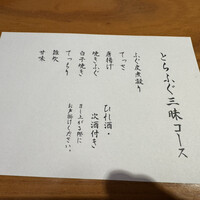 とらふぐ三昧コース
ふぐ皮煮凝り
てっさ
唐揚げ
焼きふぐ
白子焼き
てっちり
雑炊
甘味
ひれ酒・
次酒付き
さし上がる際に
お声掛けください。